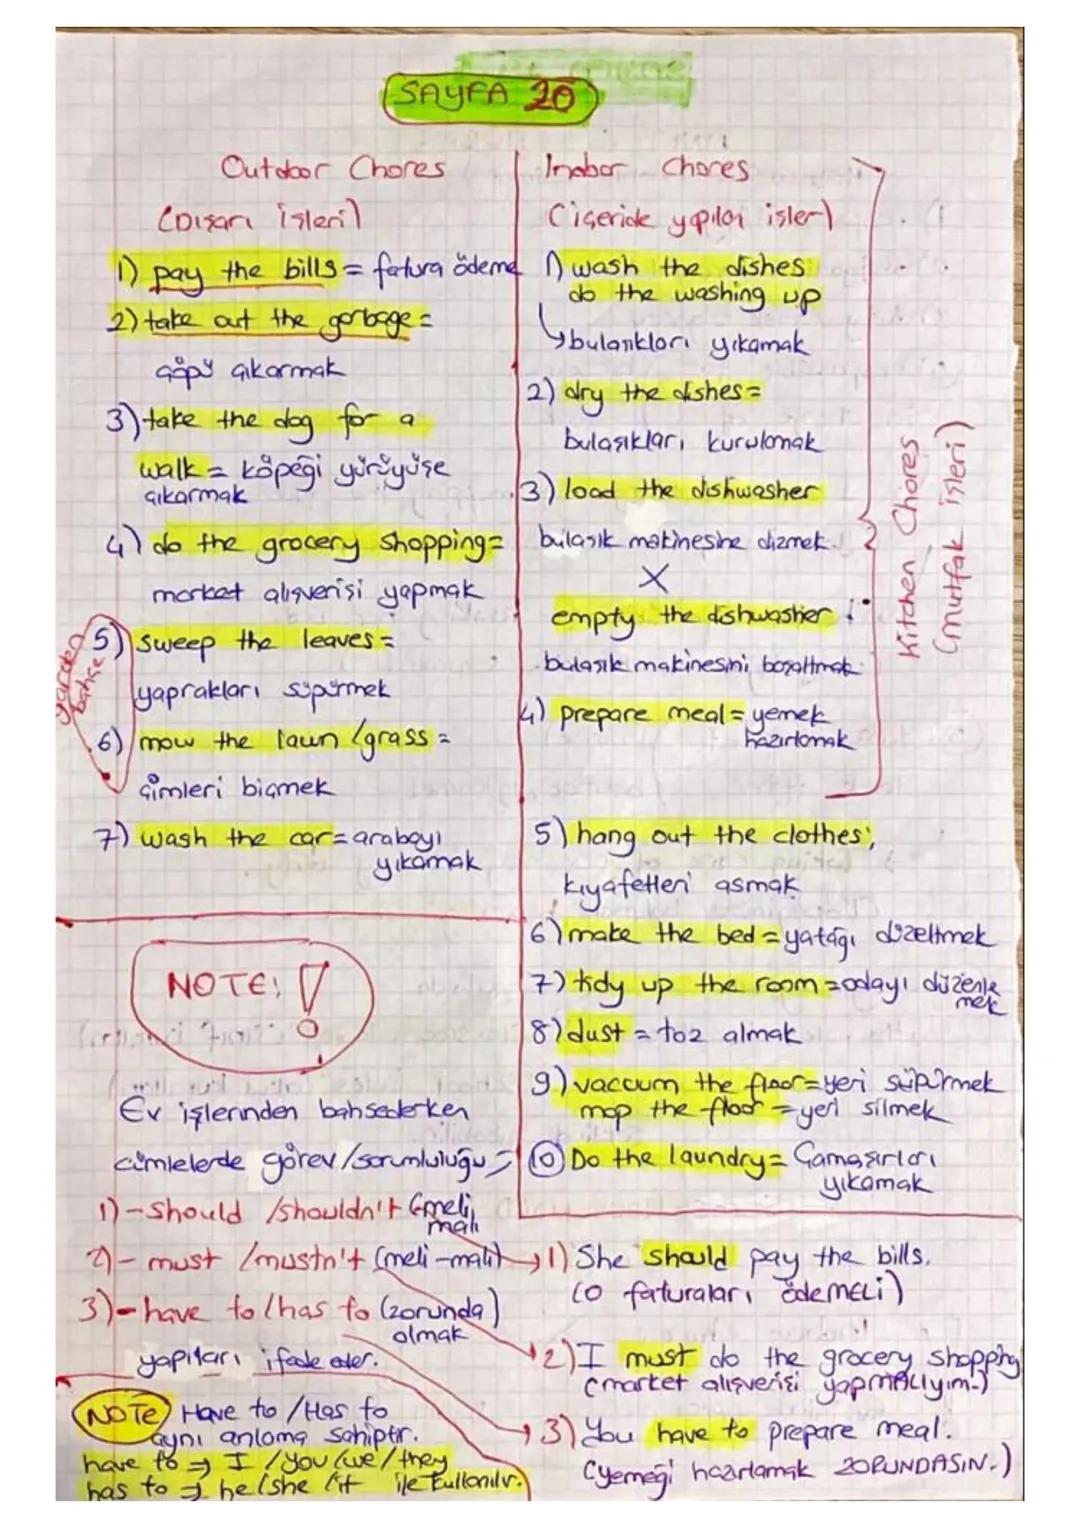 SAYFA 20
Outdoor Chores
(Dışarı işleri)
1) pay the bills = fatura ödeme
2) take out the garbage =
çöpü çıkarmak
3) take the dog for a
walk = köpeği yürüyüşe
çıkarmak
4) do the grocery shopping =
market alışverişi yapmak
garden
bahçe
5) sweep the leaves =
yaprakları süpürmek
6) mow the lawn / grass =
çimleri biçmek
7) wash the car = arabayı
yıkamak
Indoor Chores
(içeride yapılan işler)
1) wash the dishes
do the washing up
bulaşıkları yıkamak
2) dry the dishes =
bulaşıkları kurulamak
3) load the dishwasher
bulaşık makinesine dizmek
X
empty the dishwasher :
bulaşık makinesini boşaltmak
4) prepare meal = yemek
hazırlamak
Kitchen Chores
(mutfak işleri)
5) hang out the clothes;
kıyafetleri asmak
6) make the bed = yatağı düzeltmek
7) tidy up the room = odayı düzenle
mek
8) dust = toz almak
9) vaccum the floor = yeri süpürmek
mop the floor = yeri silmek
10) Do the laundry = Çamaşırları
yıkamak
NOTE: !
Ev işlerinden bahsederken
cümlelerde görev/sorumluluğu =
1) - should / shouldn't (-meli,
malı
2) - must / mustn't (meli - malı)
3) - have to / has to (zorunda)
olmak
yapıları ifade eder.
NOTE Have to / Has to
aynı anlama sahiptir.
have to → I / you / we / they
has to → he / she / it ile kullanılır.
1) She should pay the bills.
(O faturaları ödeMELİ)
2) I must do the grocery shopping
(market alışverişi yapMALIyım.)
3) You have to prepare meal.
(yemeği hazırlamak ZORUNDASIN.)